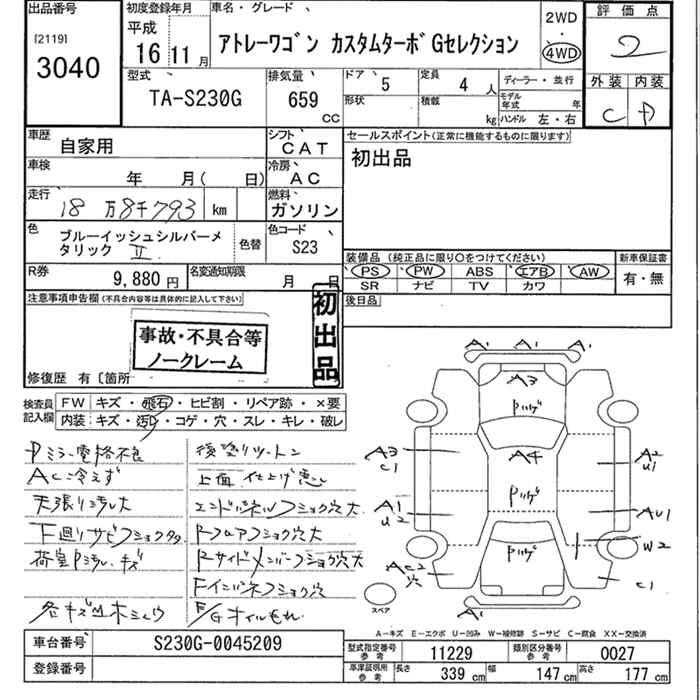 出品番号
[2119]
3040
初度登録年月
平成
16 11月
車名・グレード
アトレーワゴン カスタムターボGセレクション
2WD
・
4WD
評価点
2
外装 内装
C D
型式
TA-S230G
排気量
659
CC
ドア 5
形状
定員 4人
積載 kg
ディーラー・並行
モデル年式 年
ハンドル 左・右
車歴
自家用
シフト
CAT
車検
年 月( 日)
冷房
AC
走行
18万8千793 km
燃料
ガソリン
色
ブルーイッシュシルバーメタリック II
色替
色コード
S23
R券
9,880円
名変通知期限
月 日
セールスポイント(正常に機能するものに限ります)
初出品
装備品(純正品に限り○をつけてください)
PS PW ABS エアB AW
SR ナビ TV カワ
新車保証書
有・無
後日品
注意事項申告欄(不具合内容等は具体的に記入して下さい)
初出品
事故・不具合等
ノークレーム
修復歴 有〔箇所
検査員記入欄
FW キズ・飛石・ヒビ割・リペア跡・×要
内装:キズ・汚れ・コゲ・穴・スレ・キレ・破レ
Dミラー電格不良
AC冷えず
天張り汚れ大
下廻りサビフショク大
荷室P汚れ、キズ
各キズ凹
後塗りツートン
上面 仕上げ悪い
エンドパネルフショク穴大
Rフロアフショク穴大
Rサイドメンバーフショク穴大
Fインパネフショク穴
E/Gオイルもれ
A1 A1 A1
A3
Pハゲ
A3
C1
A2
U1
A4
Pハゲ
A1
U2
AU1
Pハゲ
W2
AC2
穴
C1
A1
スペア
A-キズ E-エクボ U-凹み W-補修跡 S-サビ C-腐食 XX-交換済
車台番号
S230G-0045209
登録番号
型式指定番号
参考
11229
類別区分番号
参考
0027
車庫証明用
参考
長さ 339 cm
幅 147 cm
高さ 177 cm